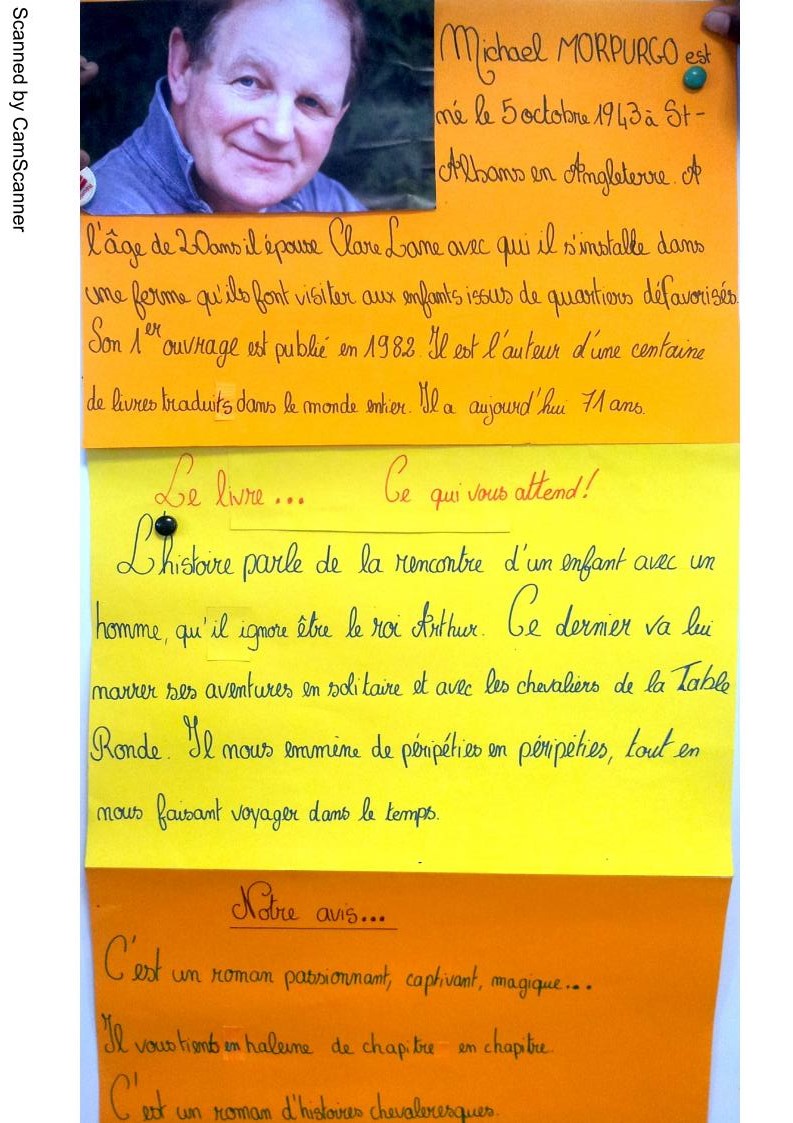 Scanned by CamScanner
Michael MORPURGO est
né le 5 octobre 1943 à St-
Albans en Angleterre. A
l'âge de 20 ans il épouse Clare Lane avec qui il s'installe dans
une ferme qu'ils font visiter aux enfants issus de quartiers défavorisés.
Son 1er ouvrage est publié en 1982. Il est l'auteur d'une centaine
de livres traduits dans le monde entier. Il a aujourd'hui 71 ans.
Le livre... Ce qui vous attend!
L'histoire parle de la rencontre d'un enfant avec un
homme, qu'il ignore être le roi Arthur. Ce dernier va lui
narrer ses aventures en solitaire et avec les chevaliers de la Table
Ronde. Il nous emmène de péripéties en péripéties, tout en
nous faisant voyager dans le temps.
Notre avis...
C'est un roman passionnant, captivant, magique...
Il vous tient en haleine de chapitre en chapitre.
C'est un roman d'histoires chevaleresques.